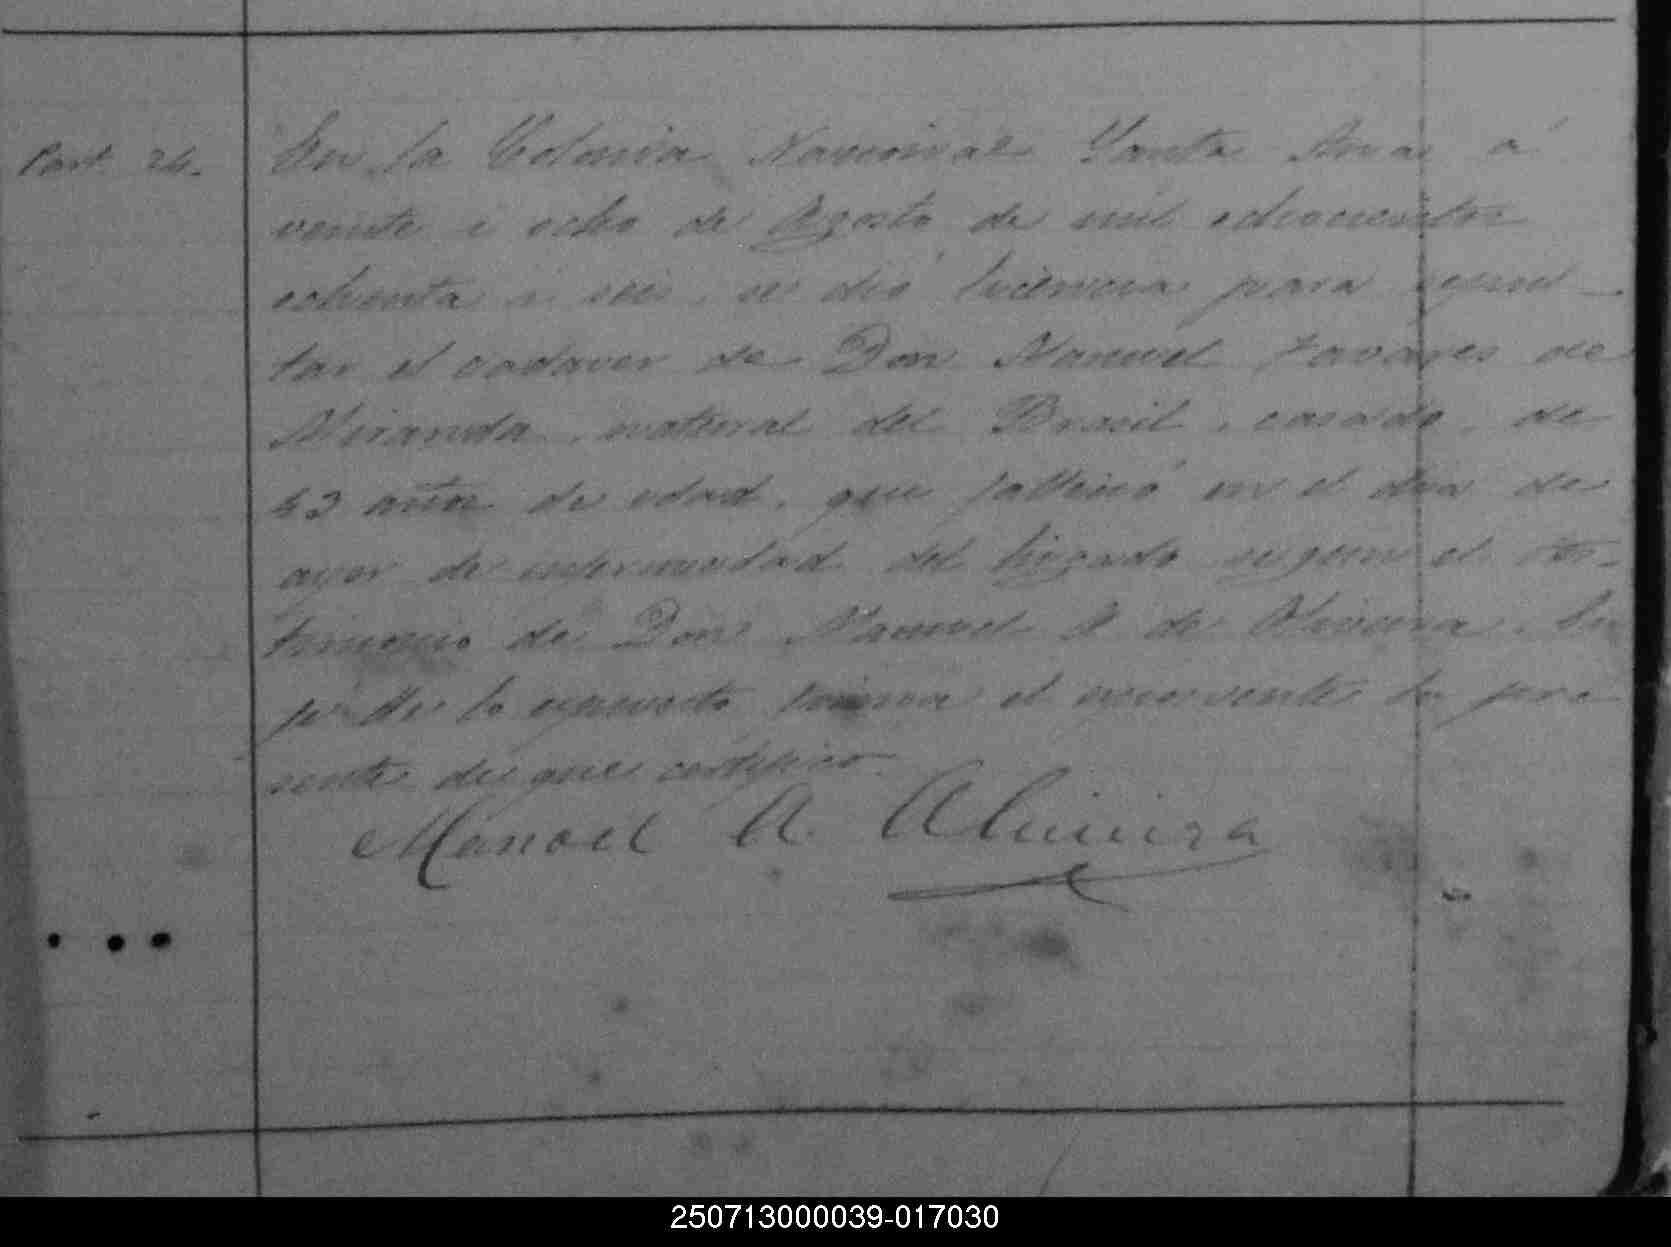 Part. 24.
En la Colonia Nacional Santa Ana á
veinte i ocho de Agosto de mil ochocientos
ochenta i seis, se dió licencia para sepul-
tar el cadaver de Don Manuel Tavares de
Miranda, natural del Brasil, casado, de
43 años de edad, que falleció en el dia de
ayer de enfermedad del higado segun el tes-
timonio de Don Manuel A de Oliveira. En
fé de lo expuesto firma el concurrente la pre
sente de que certifico.
Manoel A. Oliveira
250713000039-017030